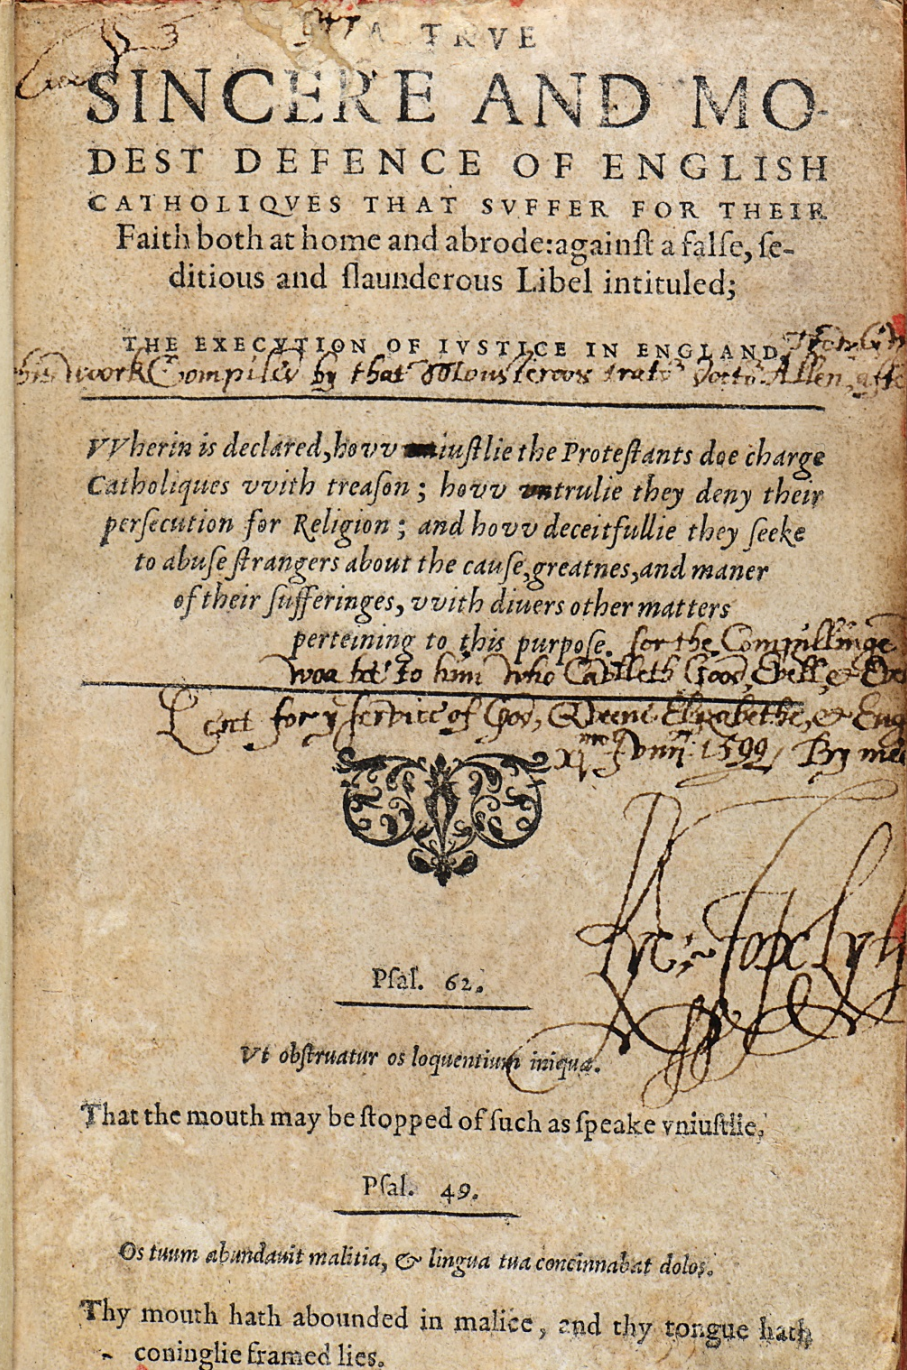 A TRVE
SINCERE AND MO-
DEST DEFENCE OF ENGLISH
CATHOLIQVES THAT SVFFER FOR THEIR
Faith both at home and abrode: againſt a falſe, ſe-
ditious and ſlaunderous Libel intituled;
THE EXECVTION OF IVSTICE IN ENGLAND.
work Compiled by that Monsterous Allen
VVherin is declared, hovv iuſtlie the Proteſtants doe charge
Catholiques vvith treaſon; hovv trulie they deny their
perſecution for Religion; and hovv deceitfullie they ſeeke
to abuſe ſtrangers about the cauſe, greatnes, and maner
of their ſufferinges, vvith diuers other matters
perteining to this purpoſe. for the Compillinge
to him who Calleth Good, Evell, &
for ẏ service of God, Queene Elizabethe, & Eng
Junii 1599 By me
Ryc: Topclyff
Pſal. 62.
Vt obſtruatur os loquentium iniqua.
That the mouth may be ſtopped of ſuch as ſpeake vniuſtlie,
Pſal. 49.
Os tuum abundauit malitia, & lingua tua concinnabat dolos.
Thy mouth hath abounded in malice, and thy tongue hath
coninglie framed lies.